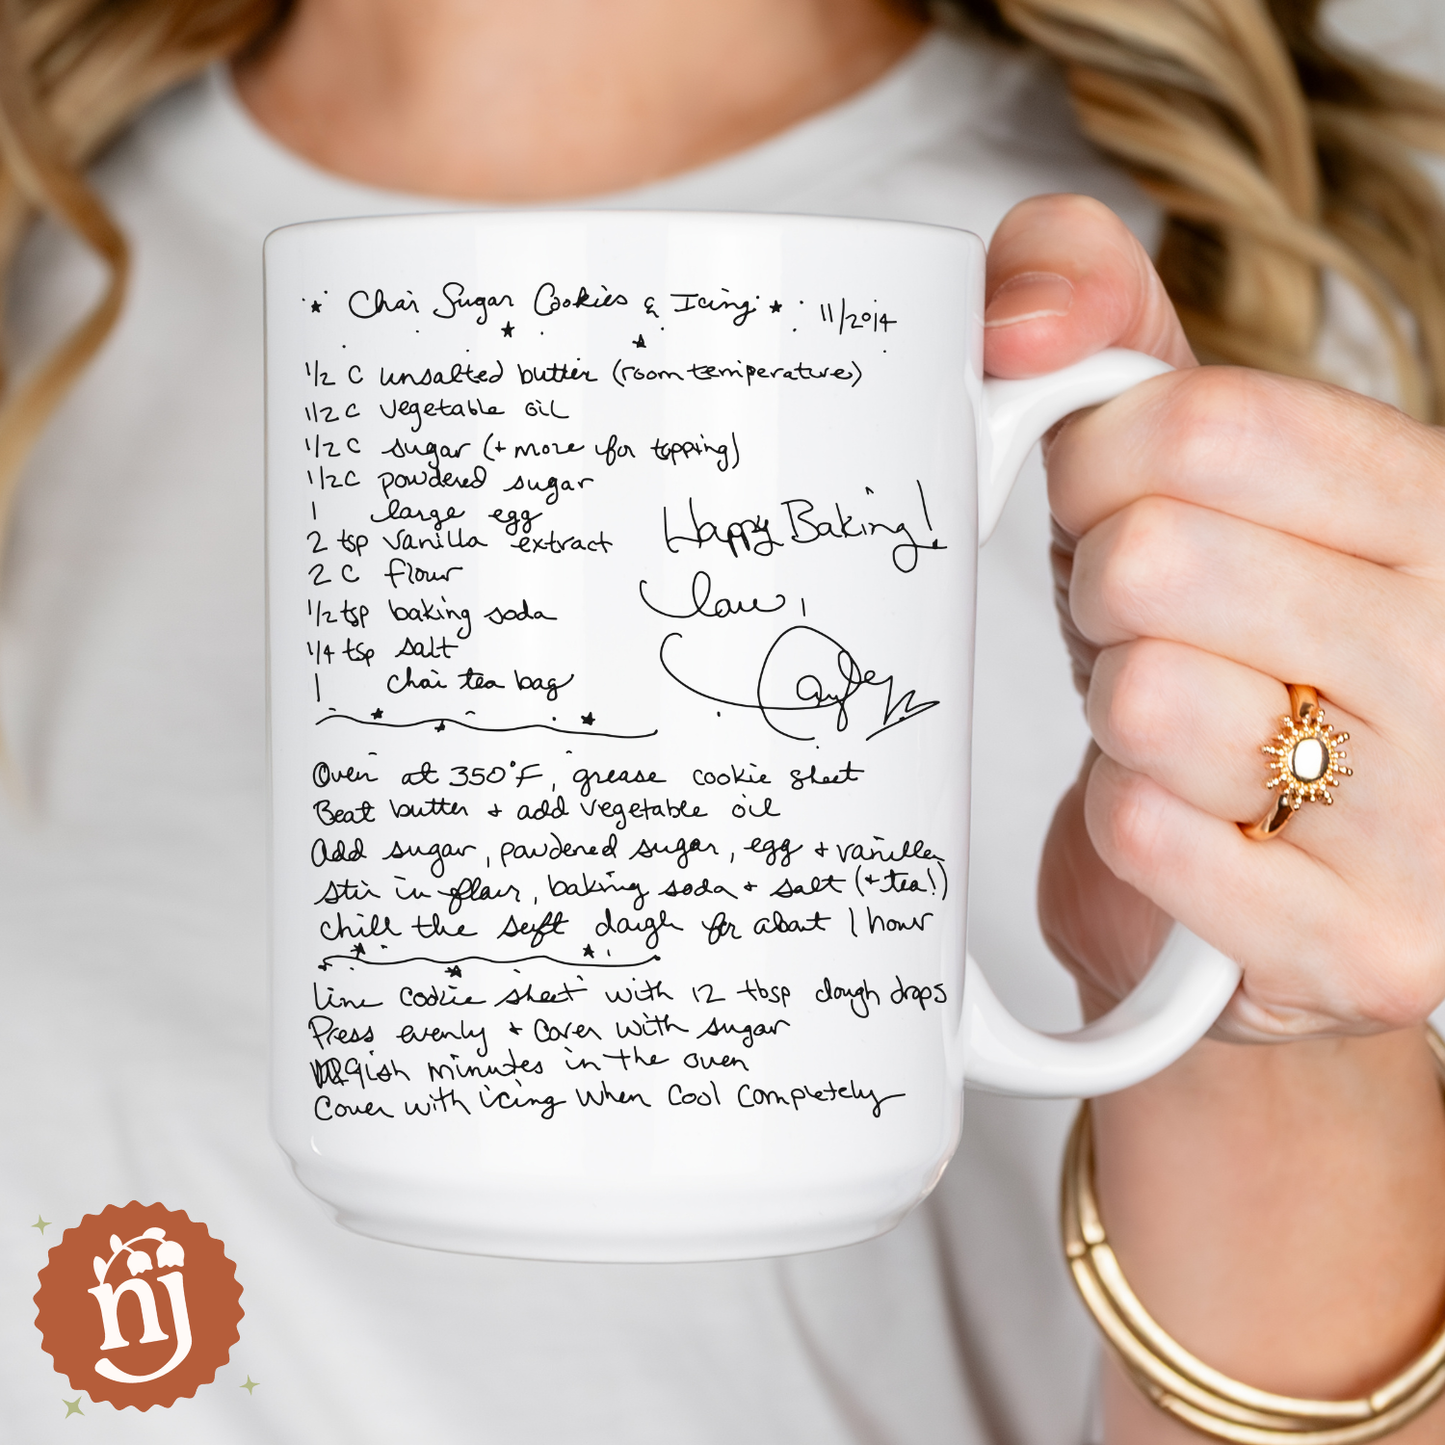 Chai Sugar Cookies & Icing 11/2014
1/2 C unsalted butter (room temperature)
1/2 C vegetable oil
1/2 C sugar (+ more for topping)
1/2 C powdered sugar
1 large egg
2 tsp vanilla extract
2 C flour
1/2 tsp baking soda
1/4 tsp salt
1 chai tea bag
Happy Baking!
Love,
Oven at 350°F, grease cookie sheet
Beat butter + add vegetable oil
Add sugar, powdered sugar, egg + vanilla
stir in flour, baking soda + salt (+ tea!)
chill the soft dough for about 1 hour
line cookie sheet with 12 tbsp dough drops
Press evenly + cover with sugar
9ish minutes in the oven
Cover with icing when cool completely
nj